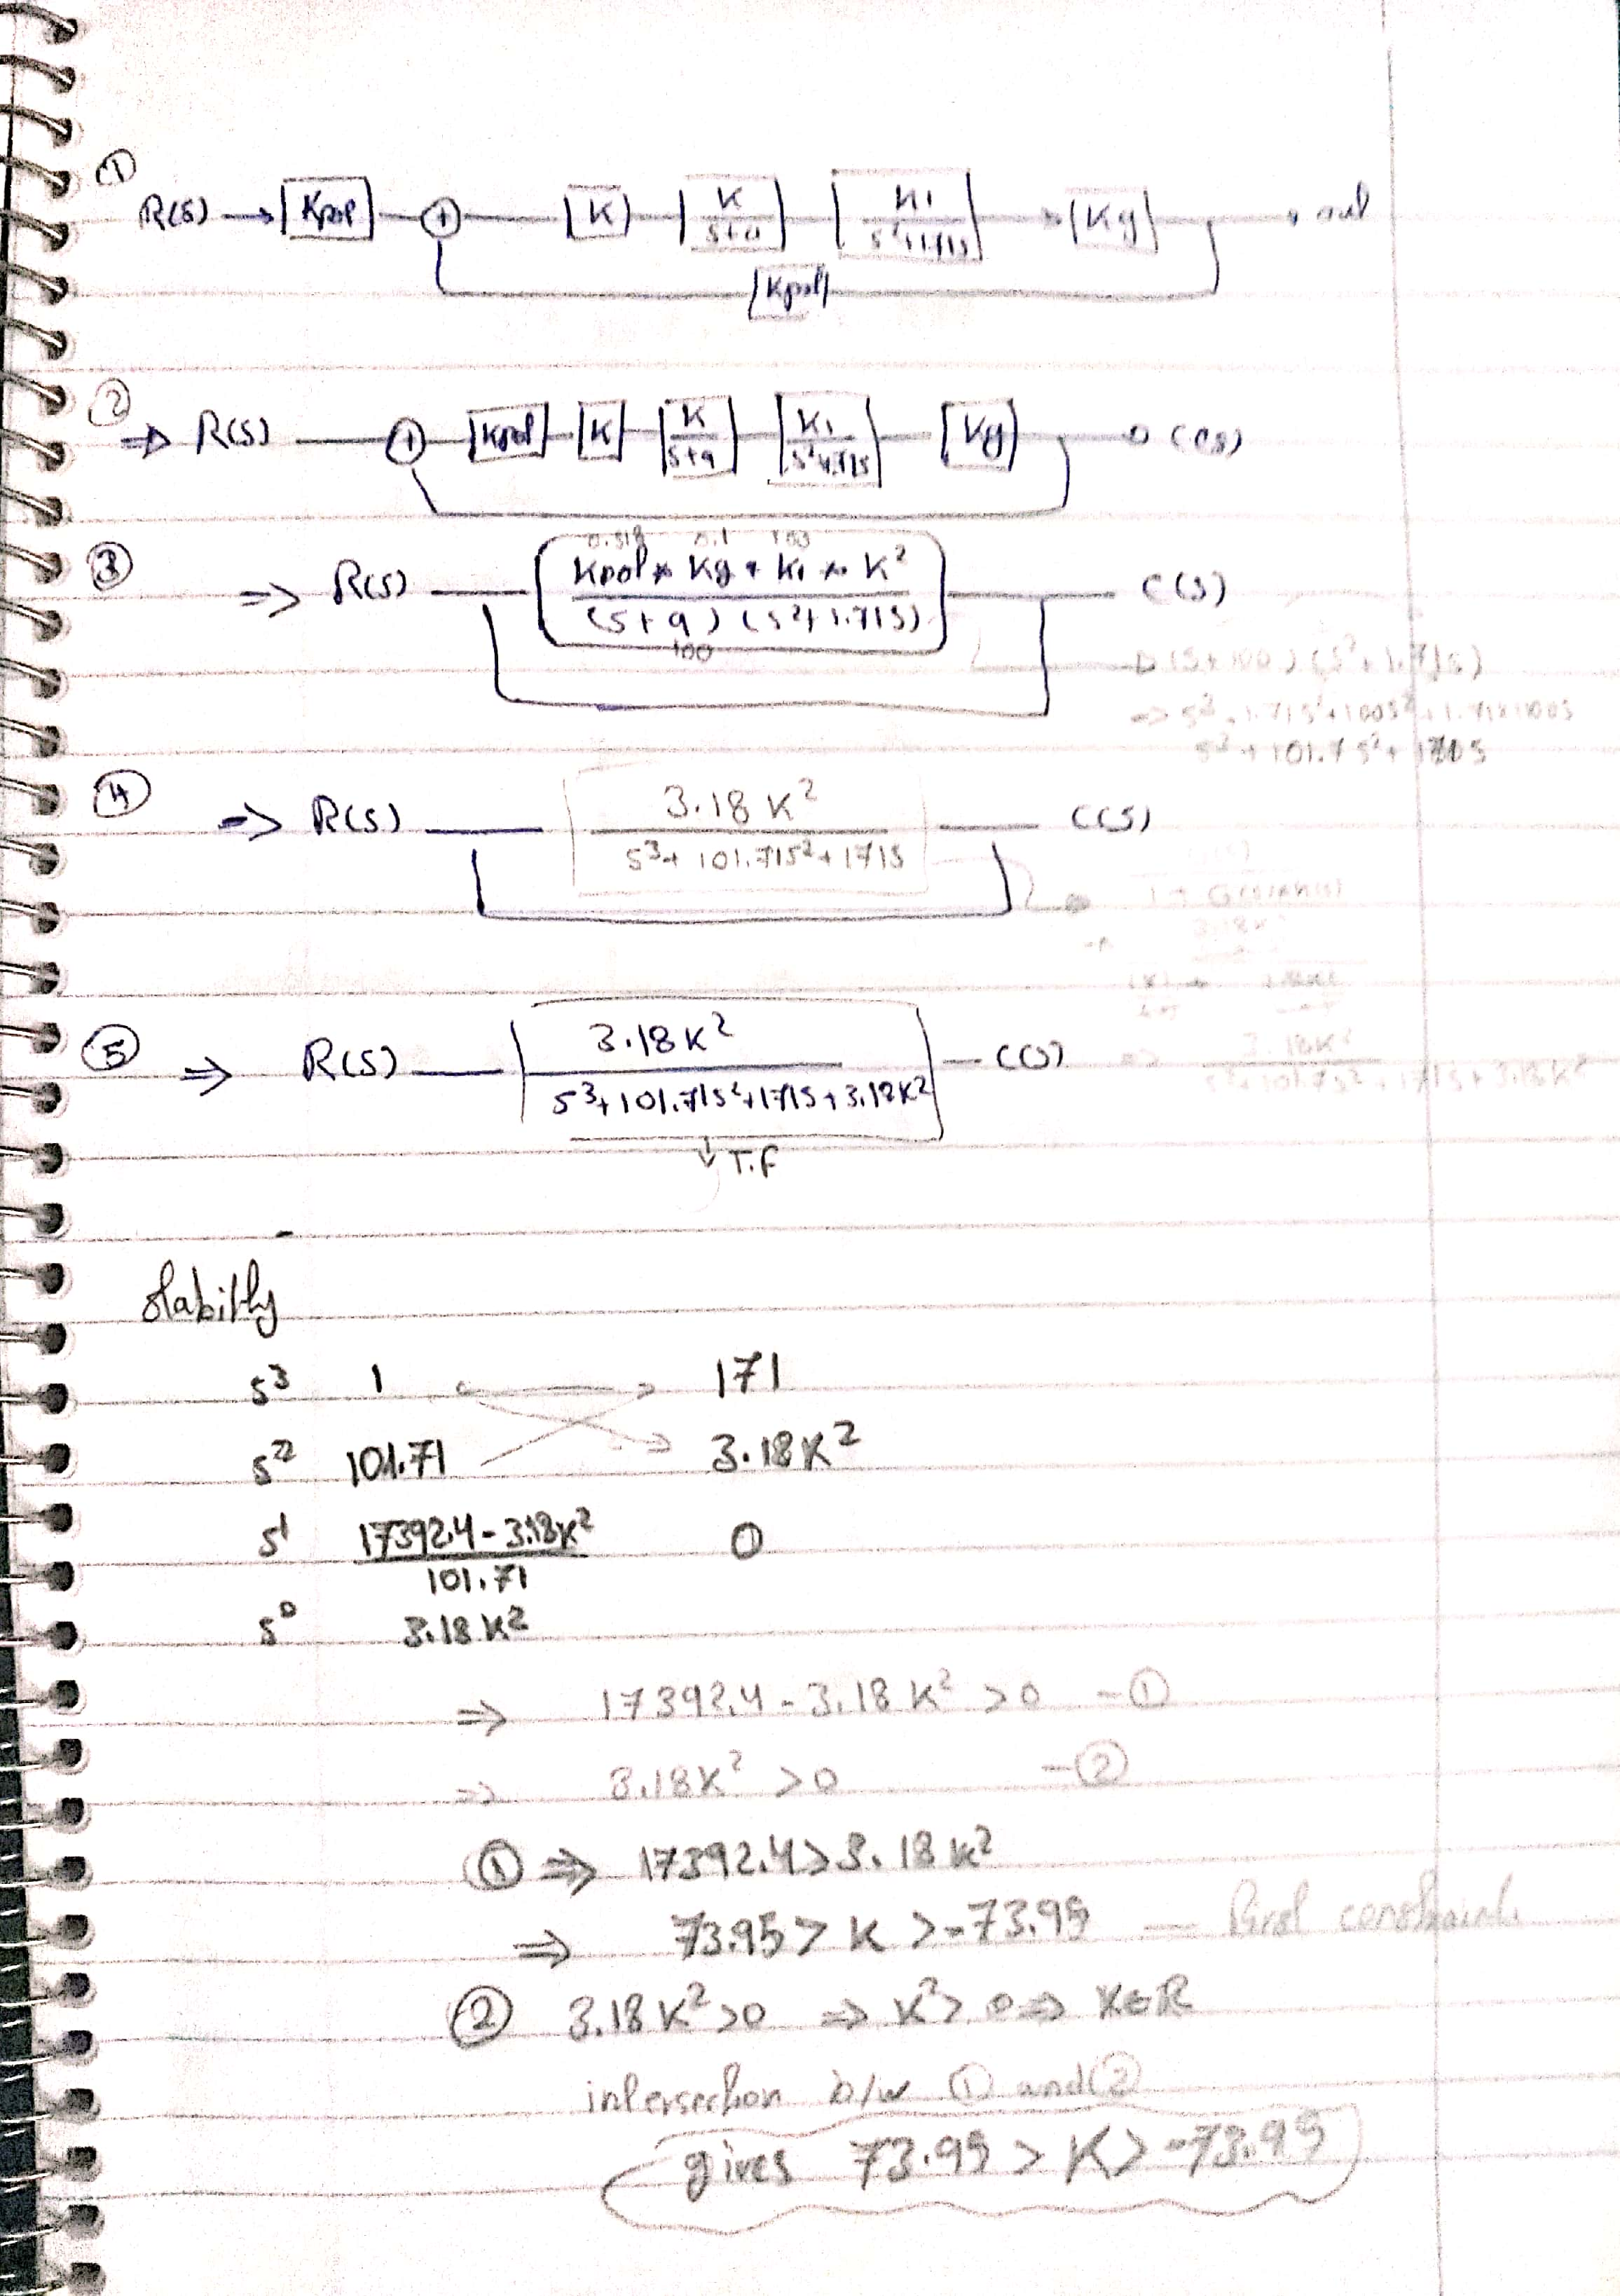 ①
R(S) → [Kpot] + [K] [K/(S+a)] [K1/(S²+1.71S)] → [Kg] → out
[Kpot]
②
⇒ R(S) + [Kpot] [K] [K/(S+a)] [K1/(S²+1.71S)] [Kg] → C(S)
③
0.318 0.1 100
⇒ R(S) Kpot * Kg * K1 * K² / (S+a)(S²+1.71S) C(S)
100
→ (S+100)(S²+1.71S)
⇒ S³+1.71S²+100S²+1.71×100S
S³+101.7S²+171S
④ ⇒ R(S) 3.18K² / S³+101.71S²+171S C(S)
1+G(S)H(S)
3.18K²
⑤ ⇒ R(S) 3.18K² / S³+101.71S²+171S+3.18K² C(S) ⇒ 3.18K² / S³+101.7S²+171S+3.18K²
↓ T.F
stability
S³ 1 171
S² 101.71 3.18K²
S¹ 17392.4-3.18K² / 101.71 0
S⁰ 3.18K²
⇒ 17392.4-3.18K² >0 -①
⇒ 3.18K² >0 -②
① ⇒ 17392.4>3.18K²
⇒ 73.95 > K >-73.95 — first constraint.
② 3.18K²>0 ⇒ K²>0 ⇒ K∈R
intersection b/w ① and ②
gives 73.95 > K > -73.95